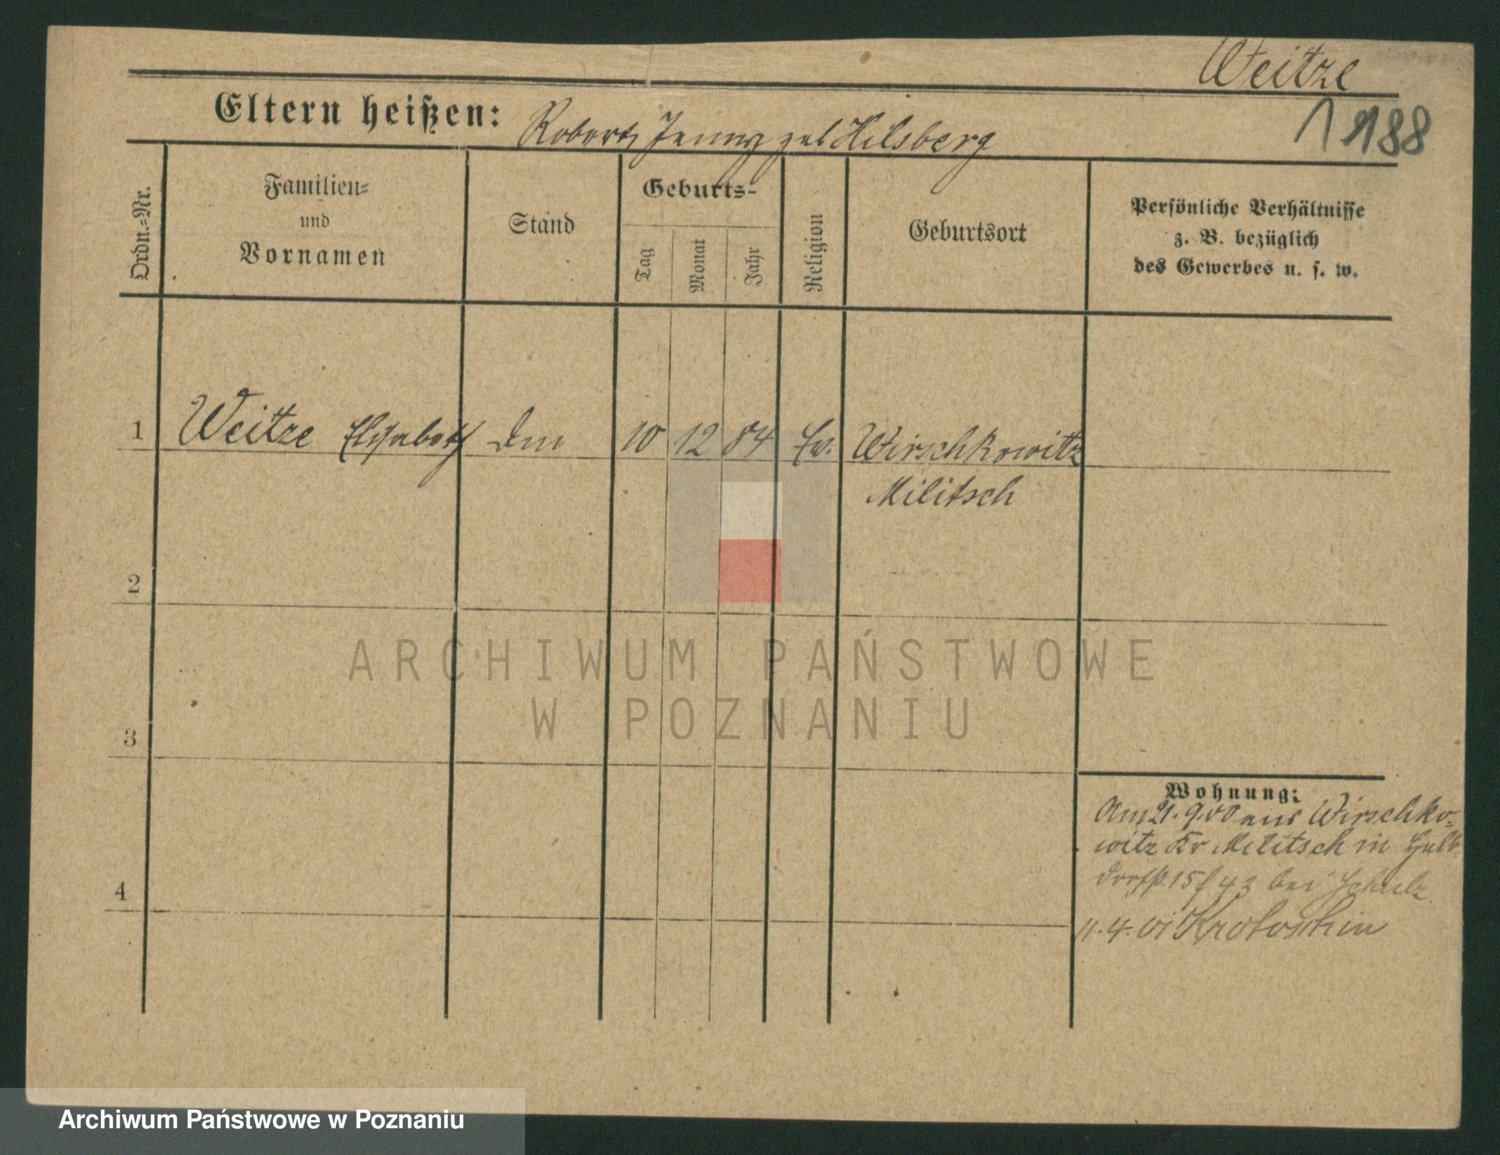 Weitze
1188
Eltern heißen: Robert, Jenny geb Hilsberg
Ordn.-Nr.
Familien-
und
Vornamen
Stand
Geburts-
Tag
Monat
Jahr
Religion
Geburtsort
Persönliche Verhältnisse
z. B. bezüglich
des Gewerbes u. s. w.
1 Weitze Elisabeth 10 12 84 Ev. Wirschkowitz
Militsch
2
ARCHIWUM PAŃSTWOWE
W POZNANIU
3
Wohnung:
Am 21.9.00 aus Wirschko-
witz Kr Militsch in
bei Schulz
4
11.4.01 Krotoschin
Archiwum Państwowe w Poznaniu